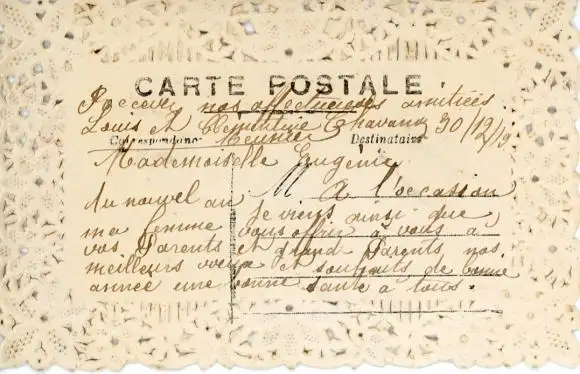 CARTE POSTALE
Recevez nos affectueuses amitiés
Louis et Clementine Chavanz 30/12/19
Meunier
Correspondance
Destinataire
Mademoiselle Eugenie
M
A l'occasion
du nouvel an je viens ainsi que
ma femme vous offrir à vous à
vos Parents et grand Parents nos
meilleurs voeux et souhaits de bonne
année une bonne santé à tous.